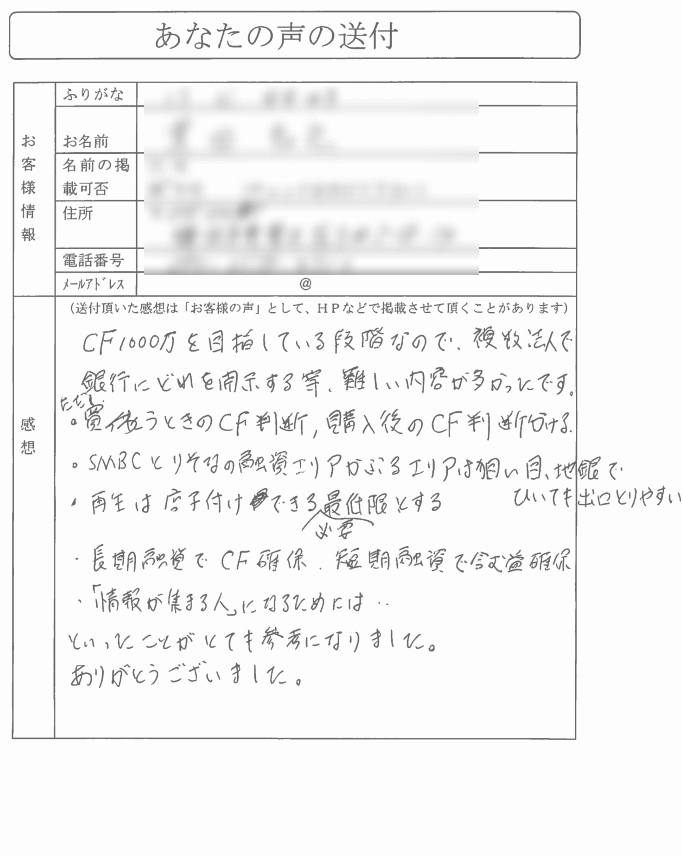 あなたの声の送付
お客様情報
ふりがな
お名前
名前の掲載可否
住所
電話番号
メールアドレス
@
感想
(送付頂いた感想は「お客様の声」として、HPなどで掲載させて頂くことがあります)
CF1000万を目指している段階なので、複数法人で
銀行にどれを開示する等、難しい内容が多かったです。
ただし
・買うときのCF判断,購入後のCF判断分ける
・SMBCとりそなの融資エリアかぶるエリアは狙い目、地銀で
ひいても出口とりやすい
・再生は店子付けできる最低限とする
必要
・長期融資でCF確保、短期融資で含む益確保
・「情報が集まる人」になるためには‥
といったことがとても参考になりました。
ありがとうございました。